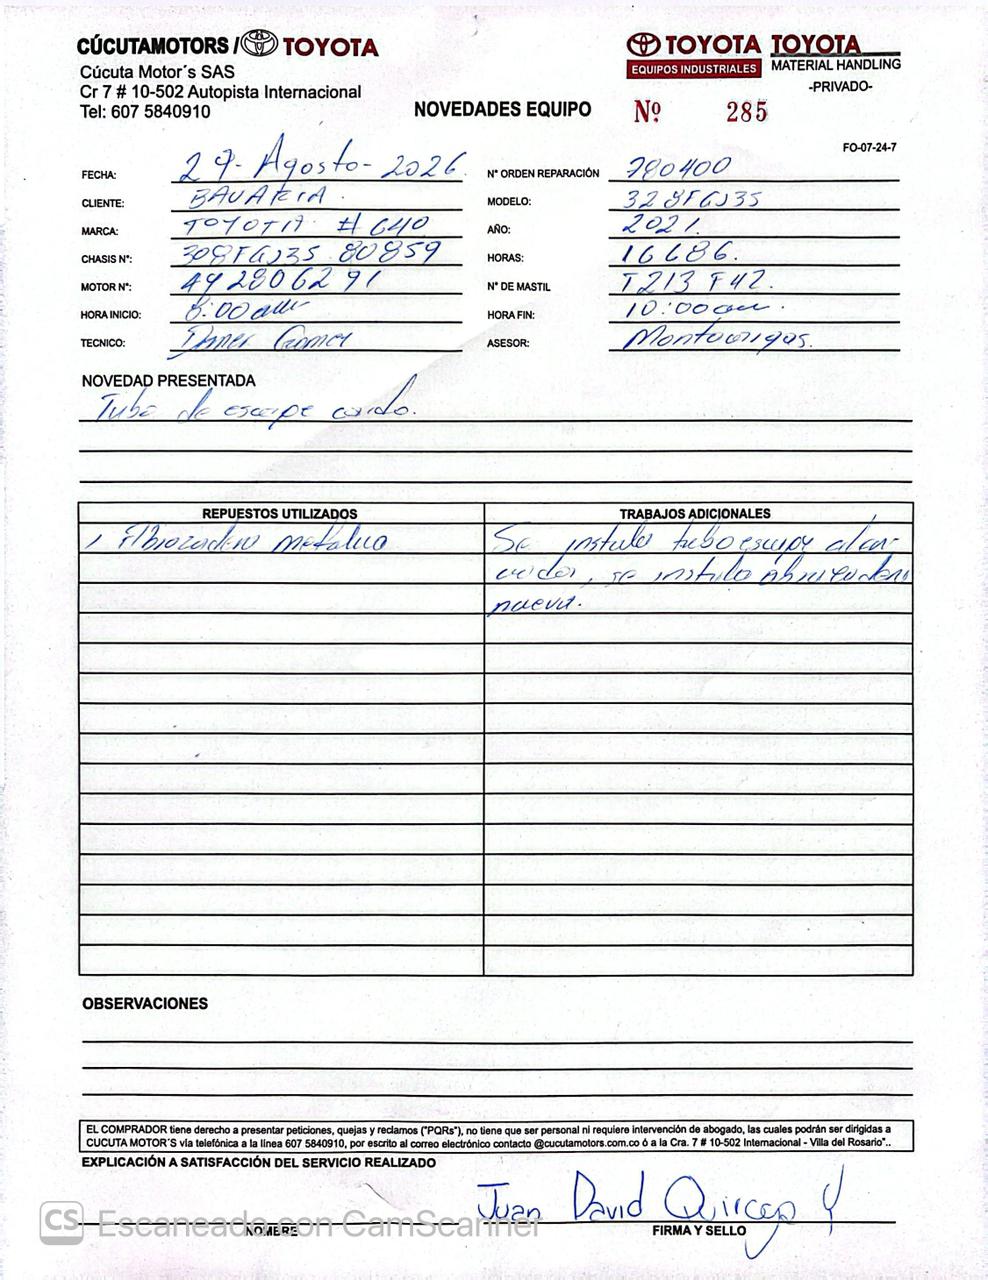 CÚCUTAMOTORS / TOYOTA
Cúcuta Motor´s SAS
Cr 7 # 10-502 Autopista Internacional
Tel: 607 5840910
TOYOTA
EQUIPOS INDUSTRIALES
TOYOTA
MATERIAL HANDLING
-PRIVADO-
NOVEDADES EQUIPO Nº 285
FO-07-24-7
FECHA: Agosto-2026.
CLIENTE: BAVARIA.
MARCA: TOYOTA #640
CHASIS Nº: 308FGJ35 80859
MOTOR Nº: 4Y2806291
HORA INICIO: 8:00am
TECNICO:
Nº ORDEN REPARACIÓN 780400
MODELO: 328FGJ35
AÑO: 2021.
HORAS: 16686.
Nº DE MASTIL T213 F42.
HORA FIN: 10:00am.
ASESOR:
NOVEDAD PRESENTADA
Tubo de escape caido.
REPUESTOS UTILIZADOS
1 metalica
TRABAJOS ADICIONALES
Se instala tubo escape
se instala
nueva.
OBSERVACIONES
EL COMPRADOR tiene derecho a presentar peticiones, quejas y reclamos ("PQRs"), no tiene que ser personal ni requiere intervención de abogado, las cuales podrán ser dirigidas a
CUCUTA MOTOR´S vía telefónica a la línea 607 5840910, por escrito al correo electrónico contacto @cucutamotors.com.co ó a la Cra. 7 # 10-502 Internacional - Villa del Rosario"..
EXPLICACIÓN A SATISFACCIÓN DEL SERVICIO REALIZADO
Juan David
NOMBRE
FIRMA Y SELLO
CS Escaneado con CamScanner